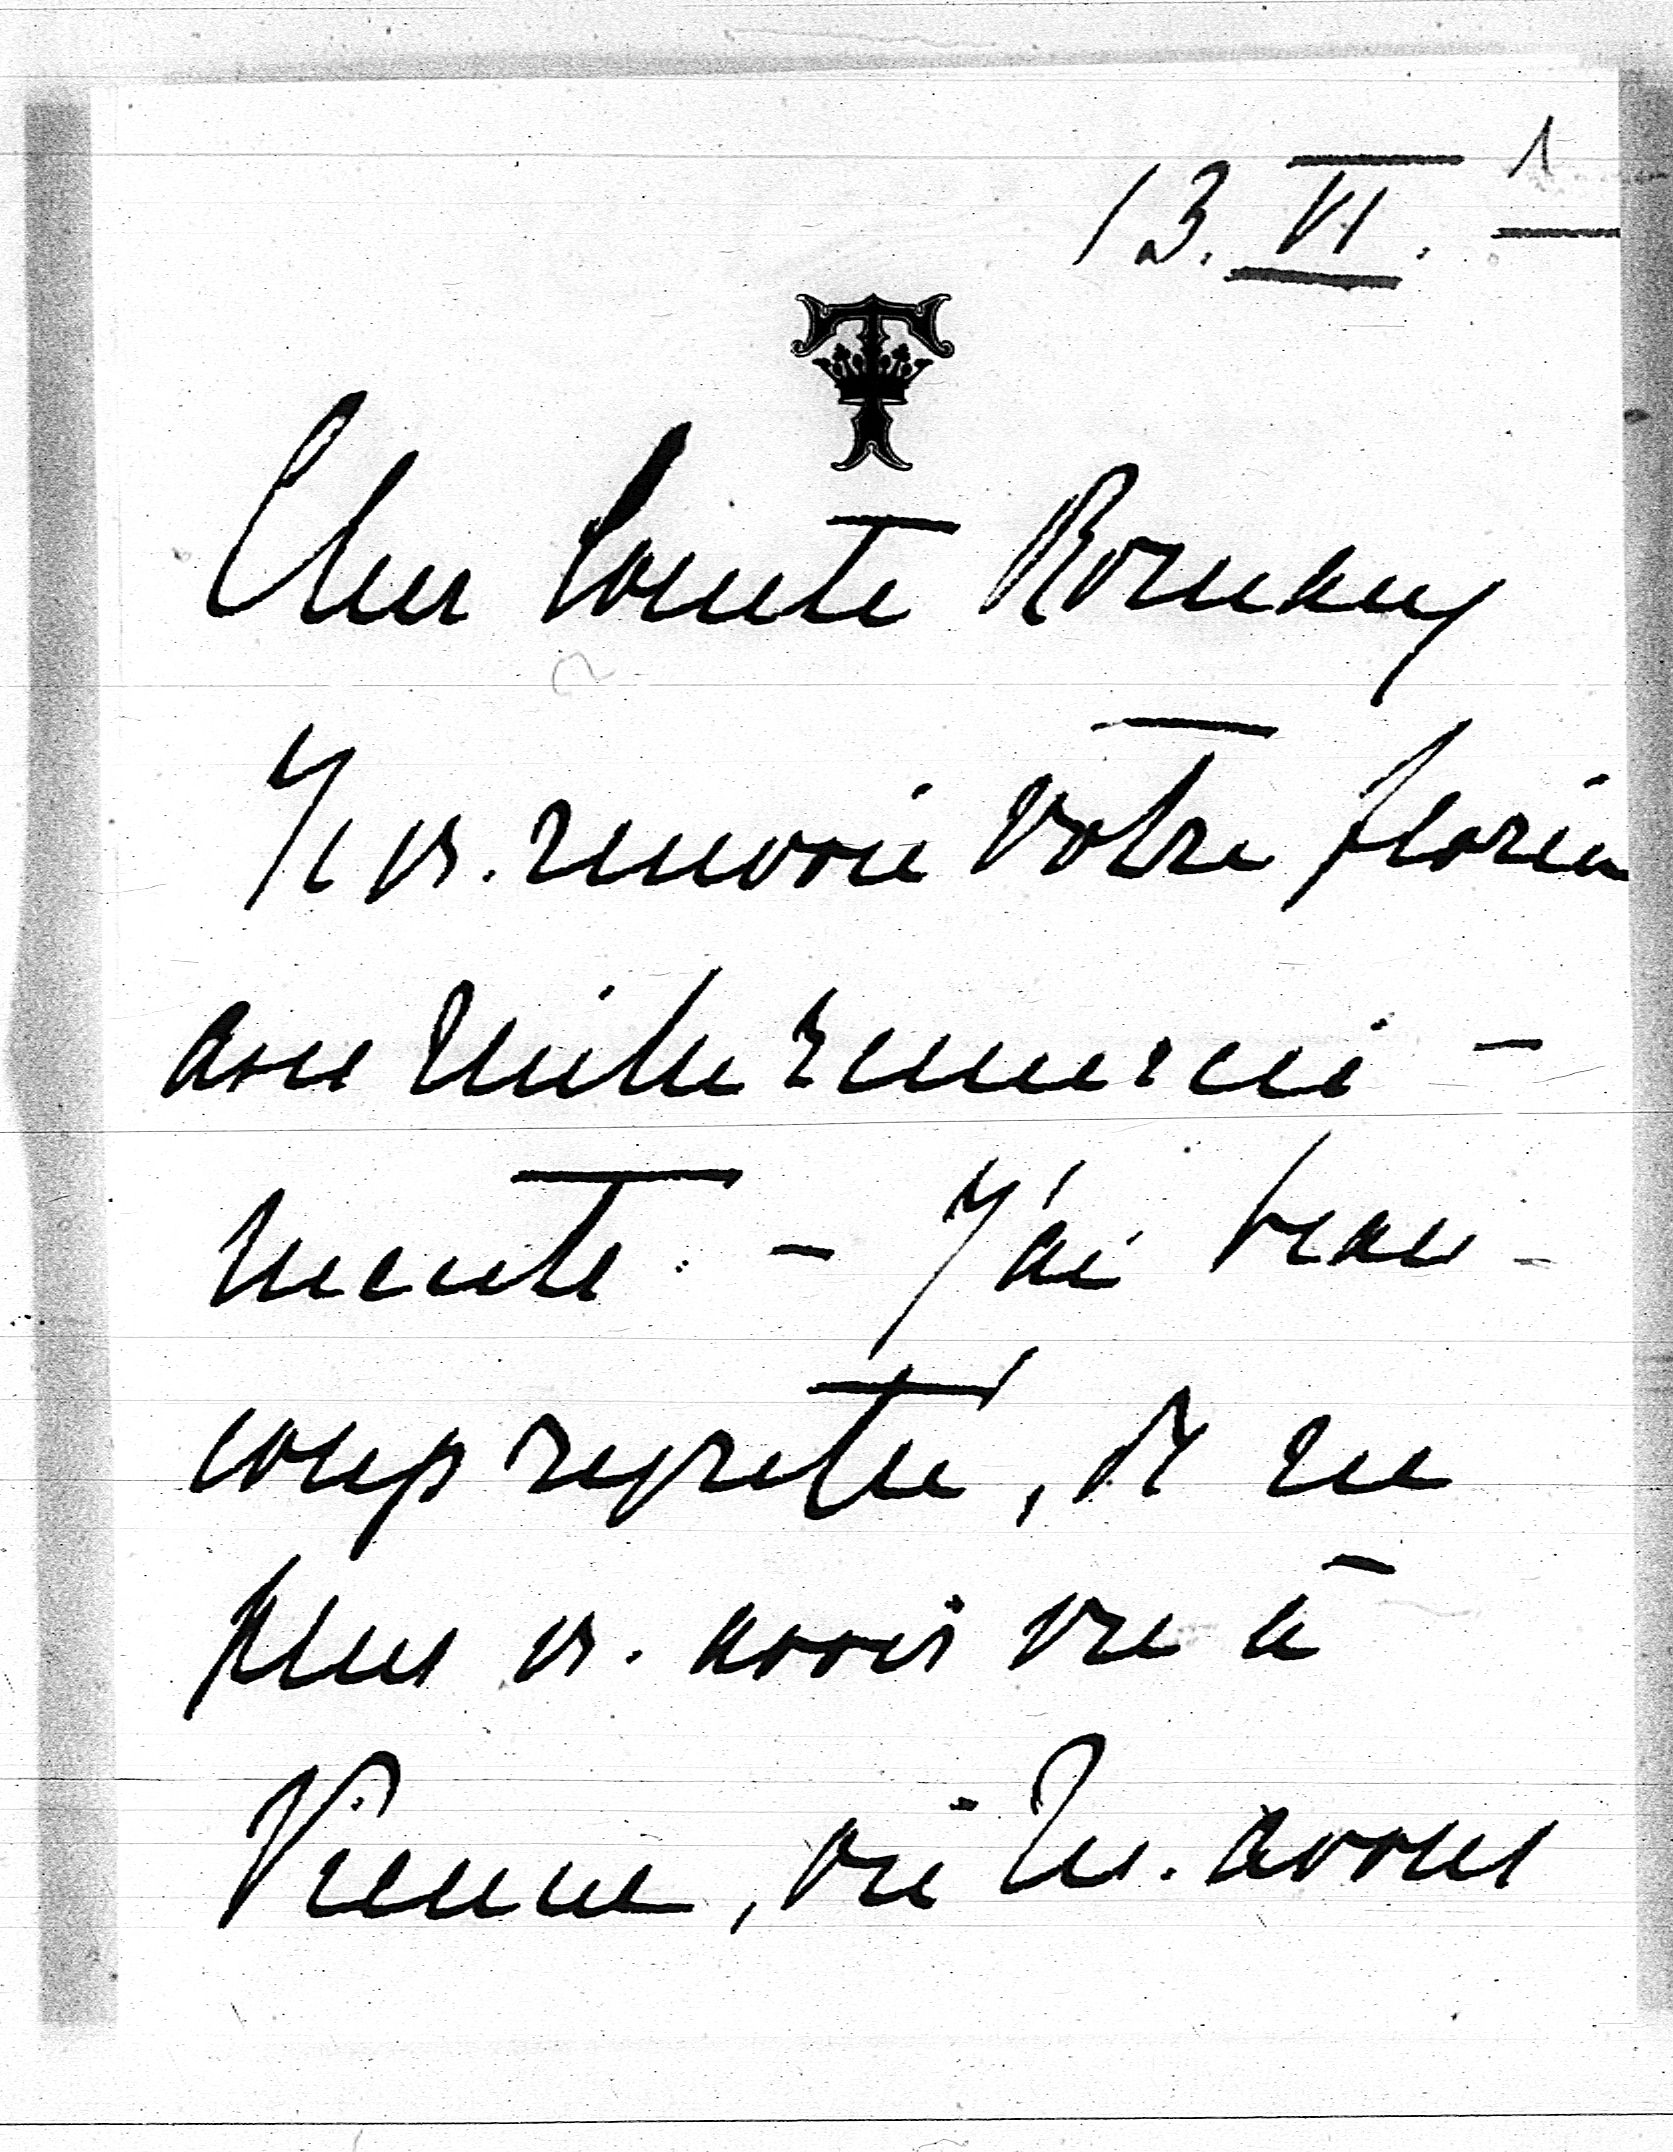 13. VI. 1
T
Cher Comte Romany
Je vs. renvoie votre florin
avec mille remerci -
ments. - J'ai beau -
coup regretté, de ne
plus vs. avoir vu à
Vienne, où ns. avons